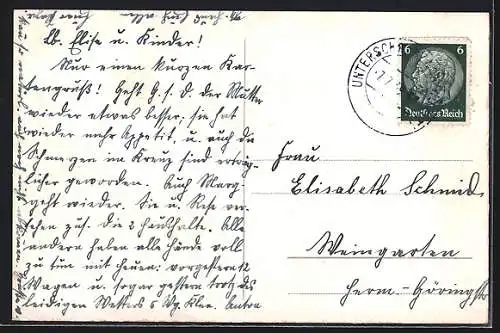 Lb. Elise u. Kinder!
Nur einen kurzen Kar-
tengruß! Geht G. s. D. der Mutter
wieder etwas besser, sie hat
wieder mehr Appetit, u. auch die
Schmerzen im Kreuz sind erträg-
licher geworden. Auch Marg.
geht wieder. Sie u. Rese ver-
sehen zus. die 2 Haushalte. Alle
andern haben alle Hände voll
zu tun mit heuen: vorgestern 12
Wagen u. sogar gestern trotz des
leidigen Wetters 5 Wg. Klee.
UNTERSCH
6 6
Deutsches Reich
Frau
Elisabeth Schmid
Weingarten
Herm.-Göringstr